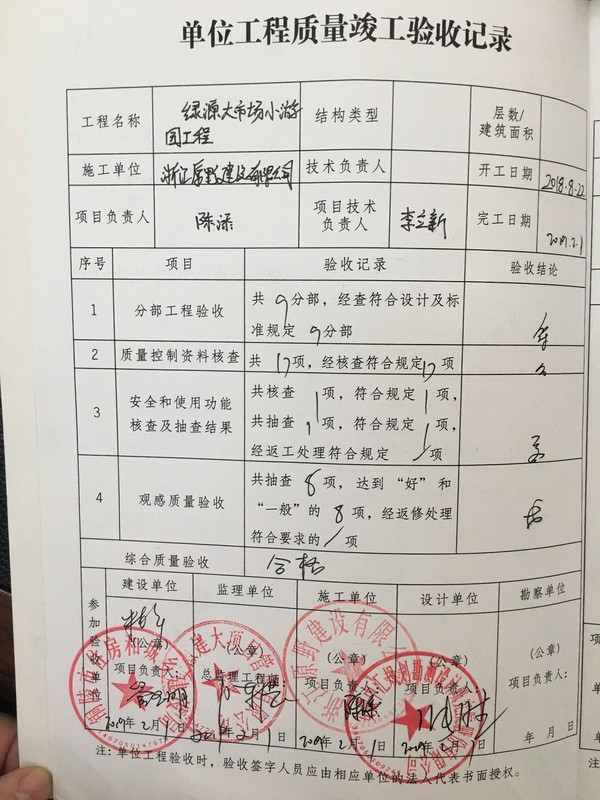 单位工程质量竣工验收记录
工程名称 绿源大市场小游园工程 结构类型 层数/建筑面积
施工单位 浙江原野建设有限公司 技术负责人 开工日期 2018.8.22
项目负责人 陈添 项目技术负责人 李立新 完工日期 2019.2.1
序号 项目 验收记录 验收结论
1 分部工程验收 共 9 分部，经查符合设计及标
准规定 9 分部
2 质量控制资料核查 共 17 项，经核查符合规定 17 项
3 安全和使用功能
核查及抽查结果
共核查 1 项，符合规定 1 项，
共抽查 1 项，符合规定 1 项，
经返工处理符合规定 / 项
4 观感质量验收
共抽查 8 项，达到“好”和
“一般”的 8 项，经返修处理
符合要求的 / 项
综合质量验收 合格
参加验收单位
建设单位 监理单位 施工单位 设计单位 勘察单位
（公章） （公章） （公章） （公章） （公章）
项目负责人： 总监理工程师 项目负责人： 项目负责人： 项目负责人：
2019年2月1日 2019年2月1日 2019年2月1日 2019年2月1日 年 月 日
注：单位工程验收时，验收签字人员应由相应单位的法人代表书面授权。